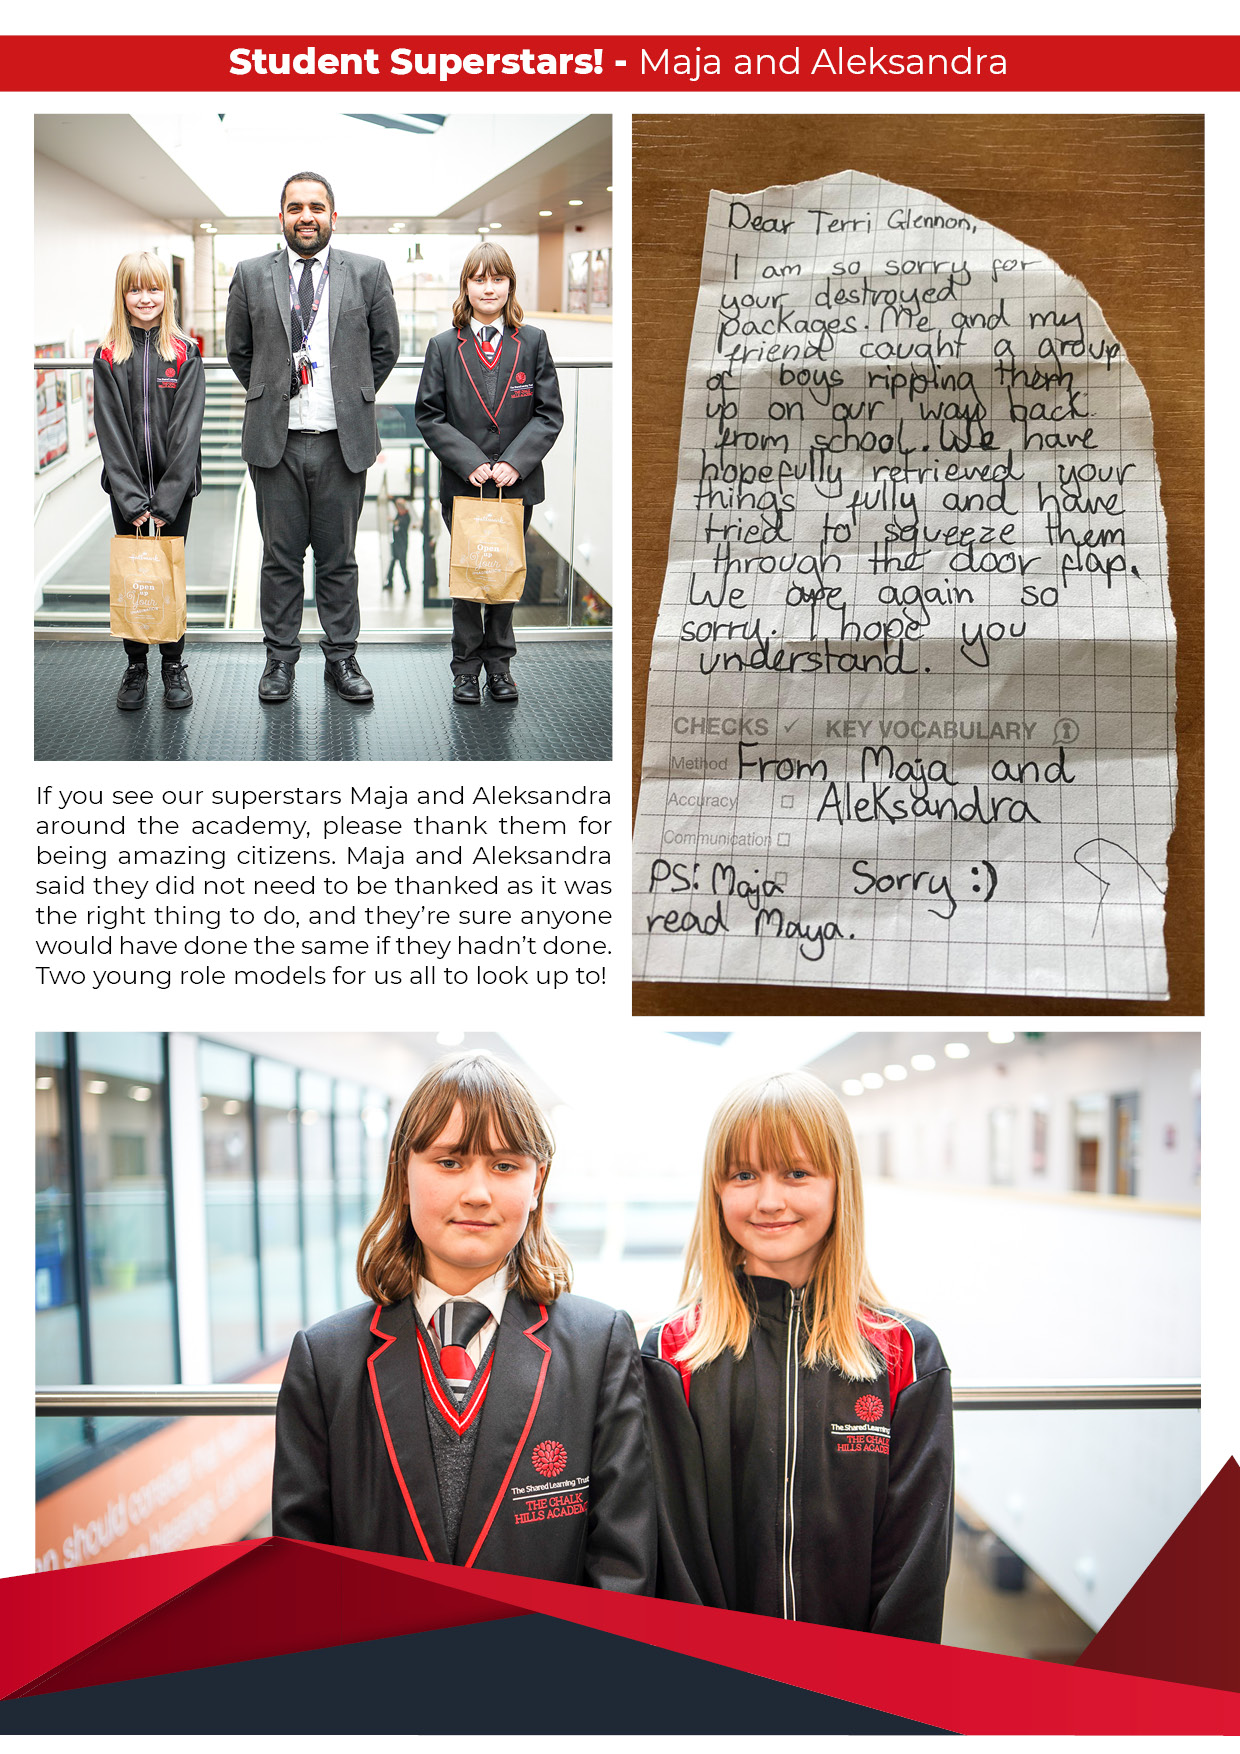 Student Superstars! - Maja and Aleksandra
Dear Terri Glennon,
I am so sorry for
your destroyed
packages. Me and my
friend caught a group
of boys ripping them
up on our way back
from school. We have
hopefully retrieved your
things fully and have
tried to squeeze them
through the door flap.
We are again so
sorry. I hope you
understand.
CHECKS ✓ KEY VOCABULARY
Method
From Maja and
Accuracy
Aleksandra
Communication
PS: Maja
Sorry :)
read Maya.
Hallmark
Open
up
Your
Hallmark
Open
up
Your
If you see our superstars Maja and Aleksandra
around the academy, please thank them for
being amazing citizens. Maja and Aleksandra
said they did not need to be thanked as it was
the right thing to do, and they’re sure anyone
would have done the same if they hadn’t done.
Two young role models for us all to look up to!
The Shared Learning Trust
THE CHALK
HILLS ACADEMY
The Shared Learning
THE CHALK
HILLS ACADEMY
should consider